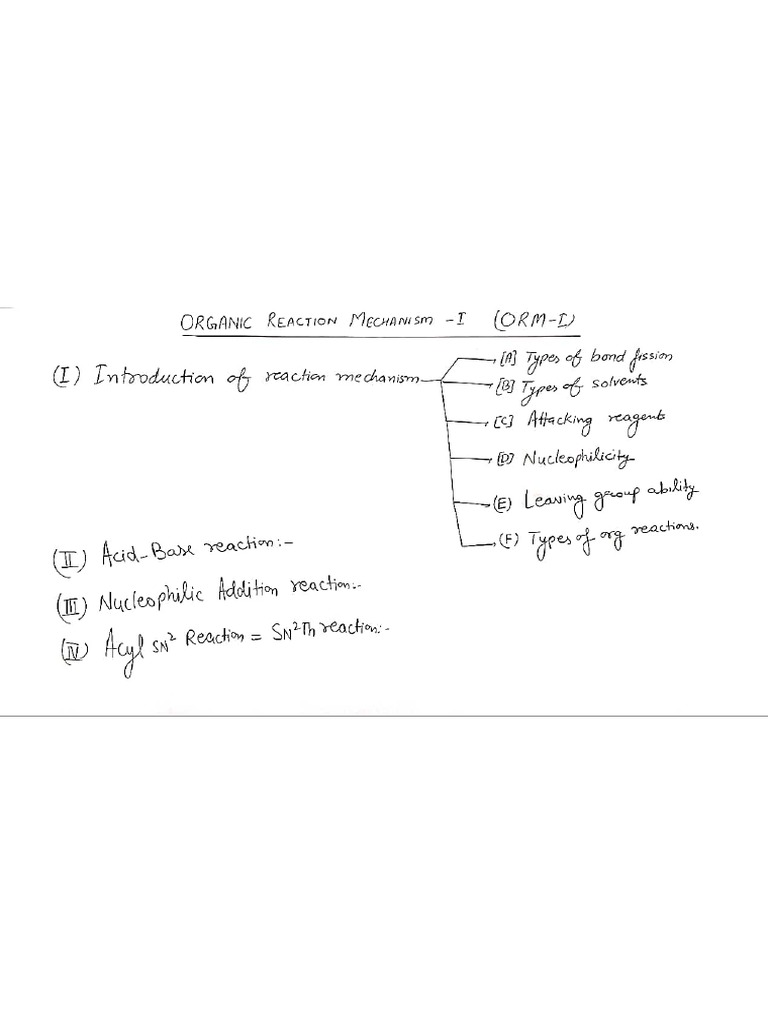 ORGANIC REACTION MECHANISM -I (ORM-I)
(I) Introduction of reaction mechanism
[A] Types of bond fission
[B] Types of solvents
[C] Attacking reagents
[D] Nucleophilicity
(E) Leaving group ability
(F) Types of org reactions.
(II) Acid-Base reaction:-
(III) Nucleophilic Addition reaction:-
(IV) Acyl SN² Reaction = SN²Th reaction:-